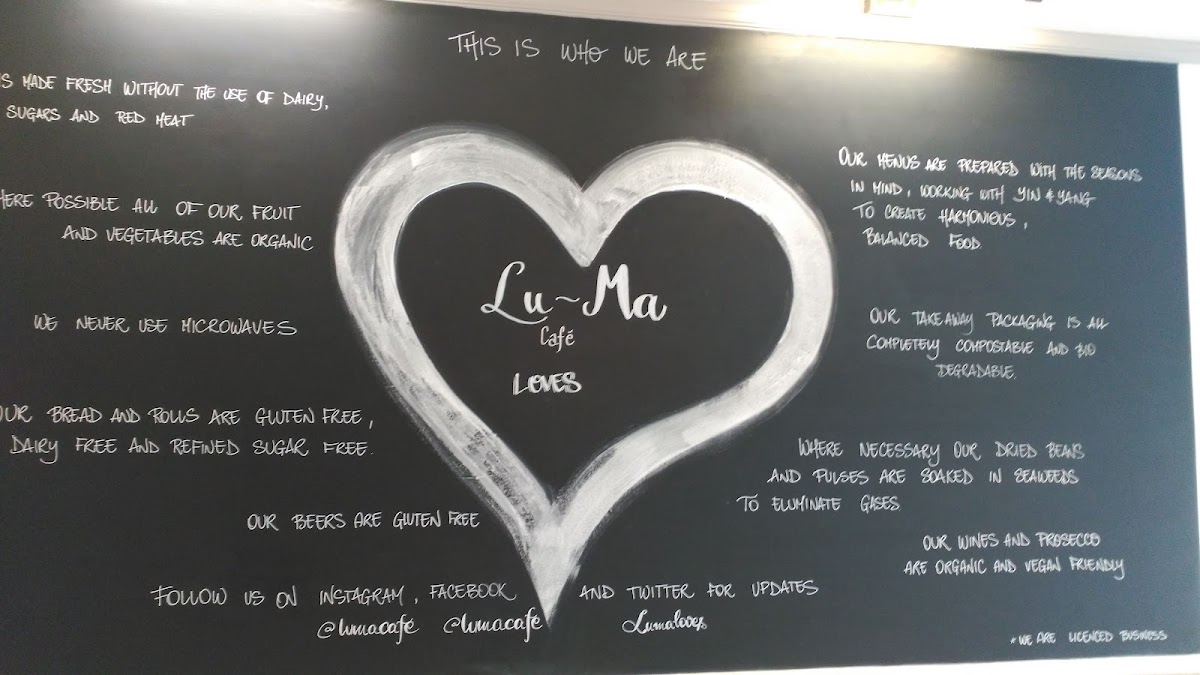 THIS IS WHO WE ARE
IS MADE FRESH WITHOUT THE USE OF DAIRY,
SUGARS AND RED MEAT
HERE POSSIBLE ALL OF OUR FRUIT
AND VEGETABLES ARE ORGANIC
WE NEVER USE MICROWAVES
OUR BREAD AND ROLLS ARE GLUTEN FREE,
DAIRY FREE AND REFINED SUGAR FREE.
OUR BEERS ARE GLUTEN FREE
Lu~Ma
Café
LOVES
OUR MENUS ARE PREPARED WITH THE SEASONS
IN MIND, WORKING WITH YIN & YANG
TO CREATE HARMONIOUS,
BALANCED FOOD.
OUR TAKEAWAY PACKAGING IS ALL
COMPLETELY COMPOSTABLE AND BIO
DEGRADABLE.
WHERE NECESSARY OUR DRIED BEANS
AND PULSES ARE SOAKED IN SEAWEEDS
TO ELUMINATE GASES.
OUR WINES AND PROSECCO
ARE ORGANIC AND VEGAN FRIENDLY
FOLLOW US ON INSTAGRAM, FACEBOOK AND TWITTER FOR UPDATES
@lumacafé @lumacafé Lumaloves
*WE ARE LICENCED BUSINESS